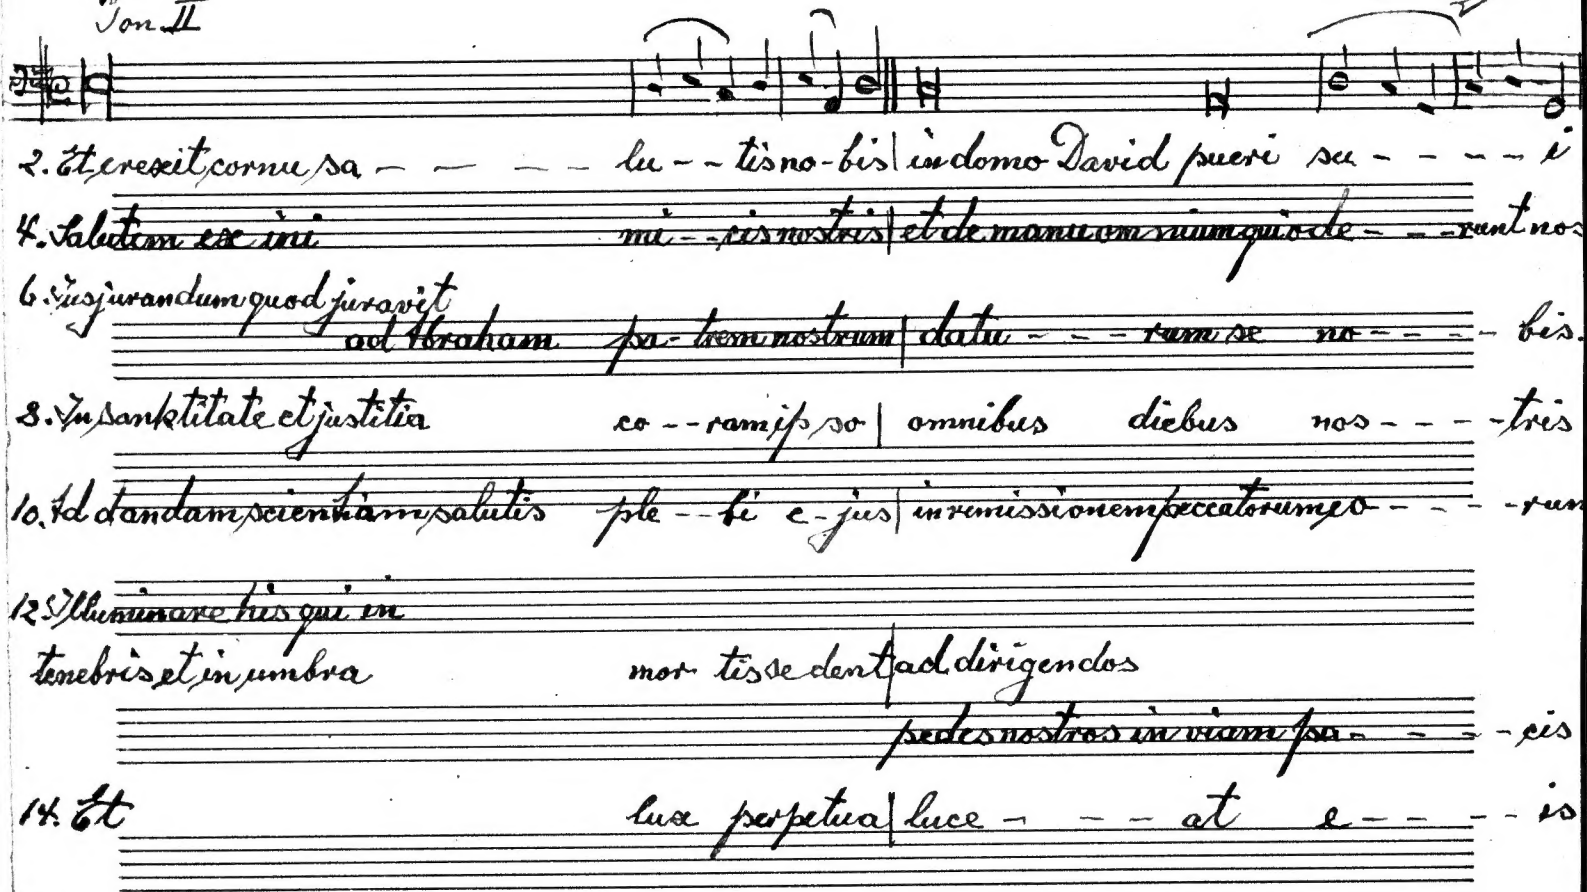 Ton. II
2. Et erexit cornu sa - - - - - lu - - tis no - bis | in domo David pueri su - - - - i
4. Salutem ex ini mi - - cis nostris | et de manu omnium qui ode - - - runt nos
6. Jusjurandum quod juravit
ad Abraham pa - trem nostrum | datu - - - rum se no - - - - bis.
8. In sanktitate et justitia co - - ram ipso | omnibus diebus nos - - - - tris
10. Ad dandam scientiam salutis ple - - bi e - jus | in remissionem peccatorum eo - - - - rum
12. Illuminare his qui in
tenebris et in umbra mor tis sedent | ad dirigendos
pedes nostros in viam pa - - - - cis
14. Et lux perpetua | luce - - - at e - - - - is